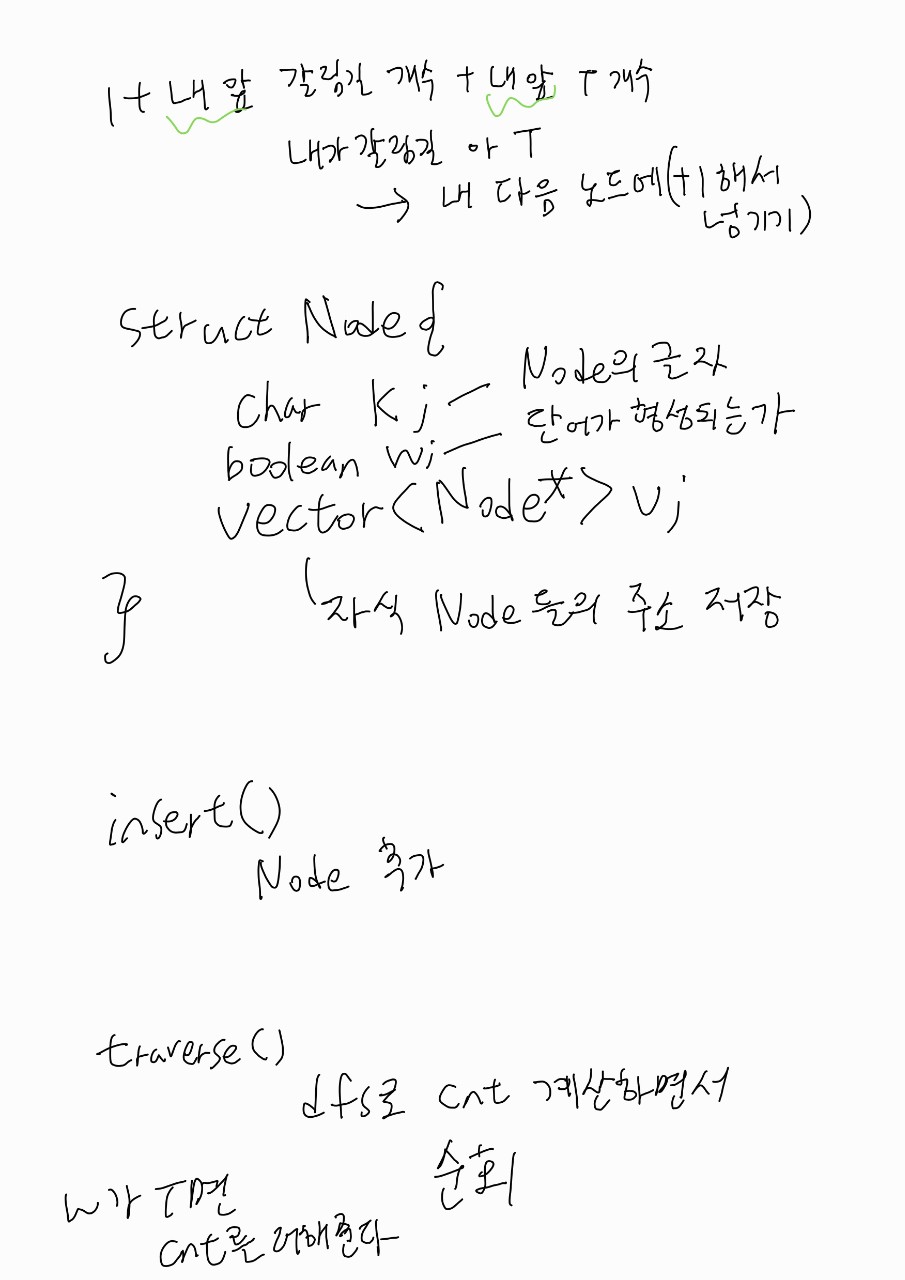 1 + 내 앞 갈림길 개수 + 내 앞 T 개수
내가 갈림길 or T
→ 내 다음 노드에(+1 해서
넘기기)
struct Node{
char k; — Node의 글자
boolean w; — 단어가 형성되는가
vector<Node*> v;
자식 Node들의 주소 저장
};
insert()
Node 추가
traverse()
dfs로 cnt 계산하면서
순회
w가 T면
cnt를 더해준다